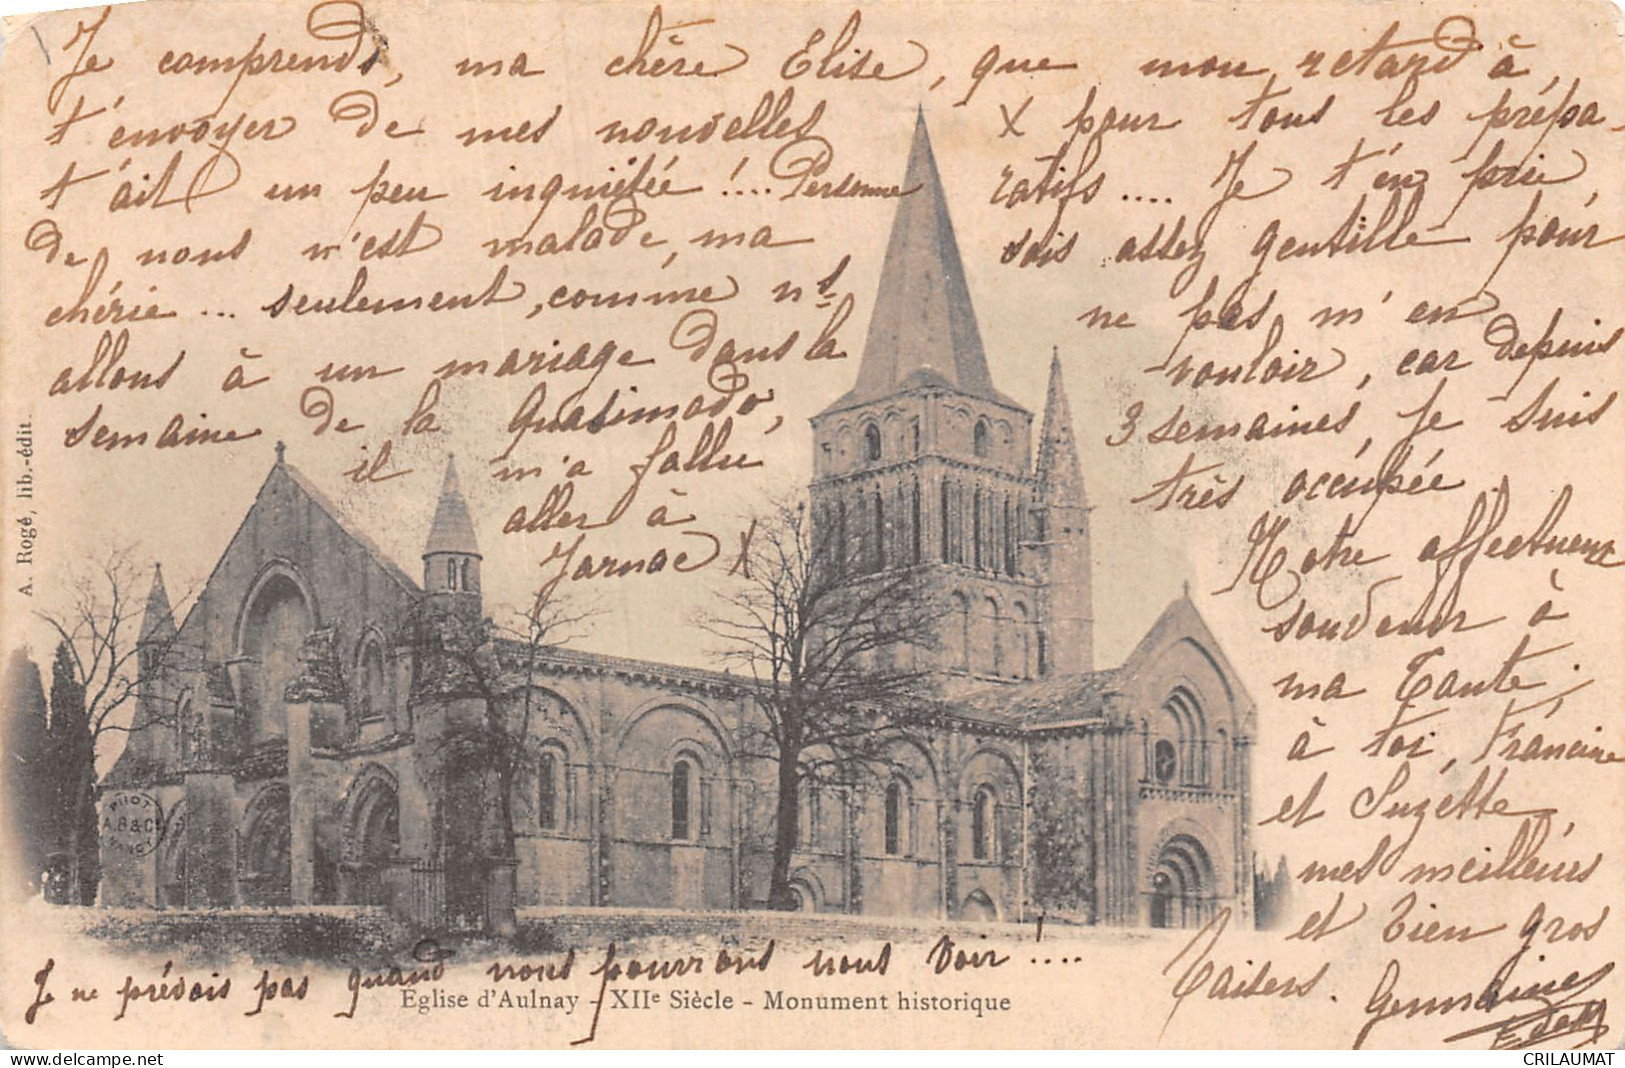 Je comprends, ma chère Elise, que mon retard à
t'envoyer de mes nouvelles
t'ait un peu inquiétée !.... Personne
de nous n'est malade, ma
chérie... seulement, comme ns.
allons à un mariage dans la
semaine de la Quasimodo,
il m'a fallu
aller à
Jarnac X
X pour tous les prépa-
ratifs.... Je t'en prie,
sois assez gentille pour
ne pas m'en
vouloir, car depuis
3 semaines, je suis
très occupée.
Notre affectueux
souvenir à
ma Tante,
à toi, Francine
et Suzette,
mes meilleurs
et bien gros
baisers. Germaine
Je ne prévois pas quand nous pourrons nous voir !....
Eglise d'Aulnay - XIIe Siècle - Monument historique
A. Rogé, lib.-édit.
PHOT
A.B & Cie
NANCY
CRILAUMAT